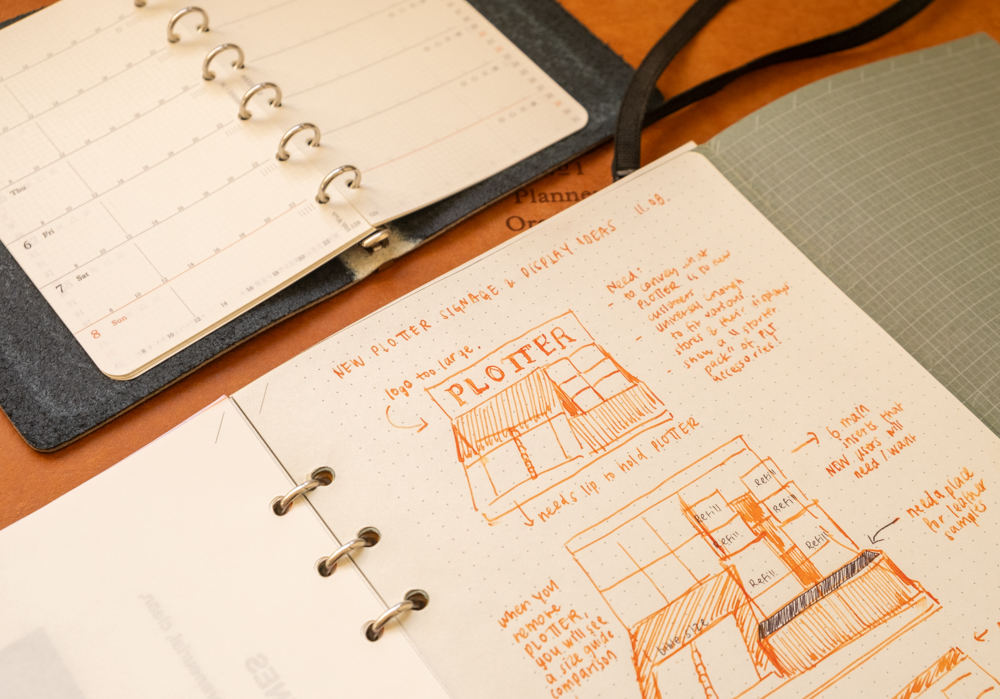 Thu
6 Fri
7 Sat
8 Sun
Planne
Or
NEW PLOTTER SIGNAGE & DISPLAY IDEAS 11.08.
logo too large.
PLOTTER
Need:
- to convey what
PLOTTER is to new
customers
universal enough
to fit various
stores & their displays
- show a "starter
pack" of PLT
accessories!
needs lip to hold PLOTTER
6 main
inserts that
NOW users will
need / want
needs place
for leather
samples
Refill
Refill
Refill
Refill
Refill
Refill
when you
remove
PLOTTER,
you will see
a size guide
comparison